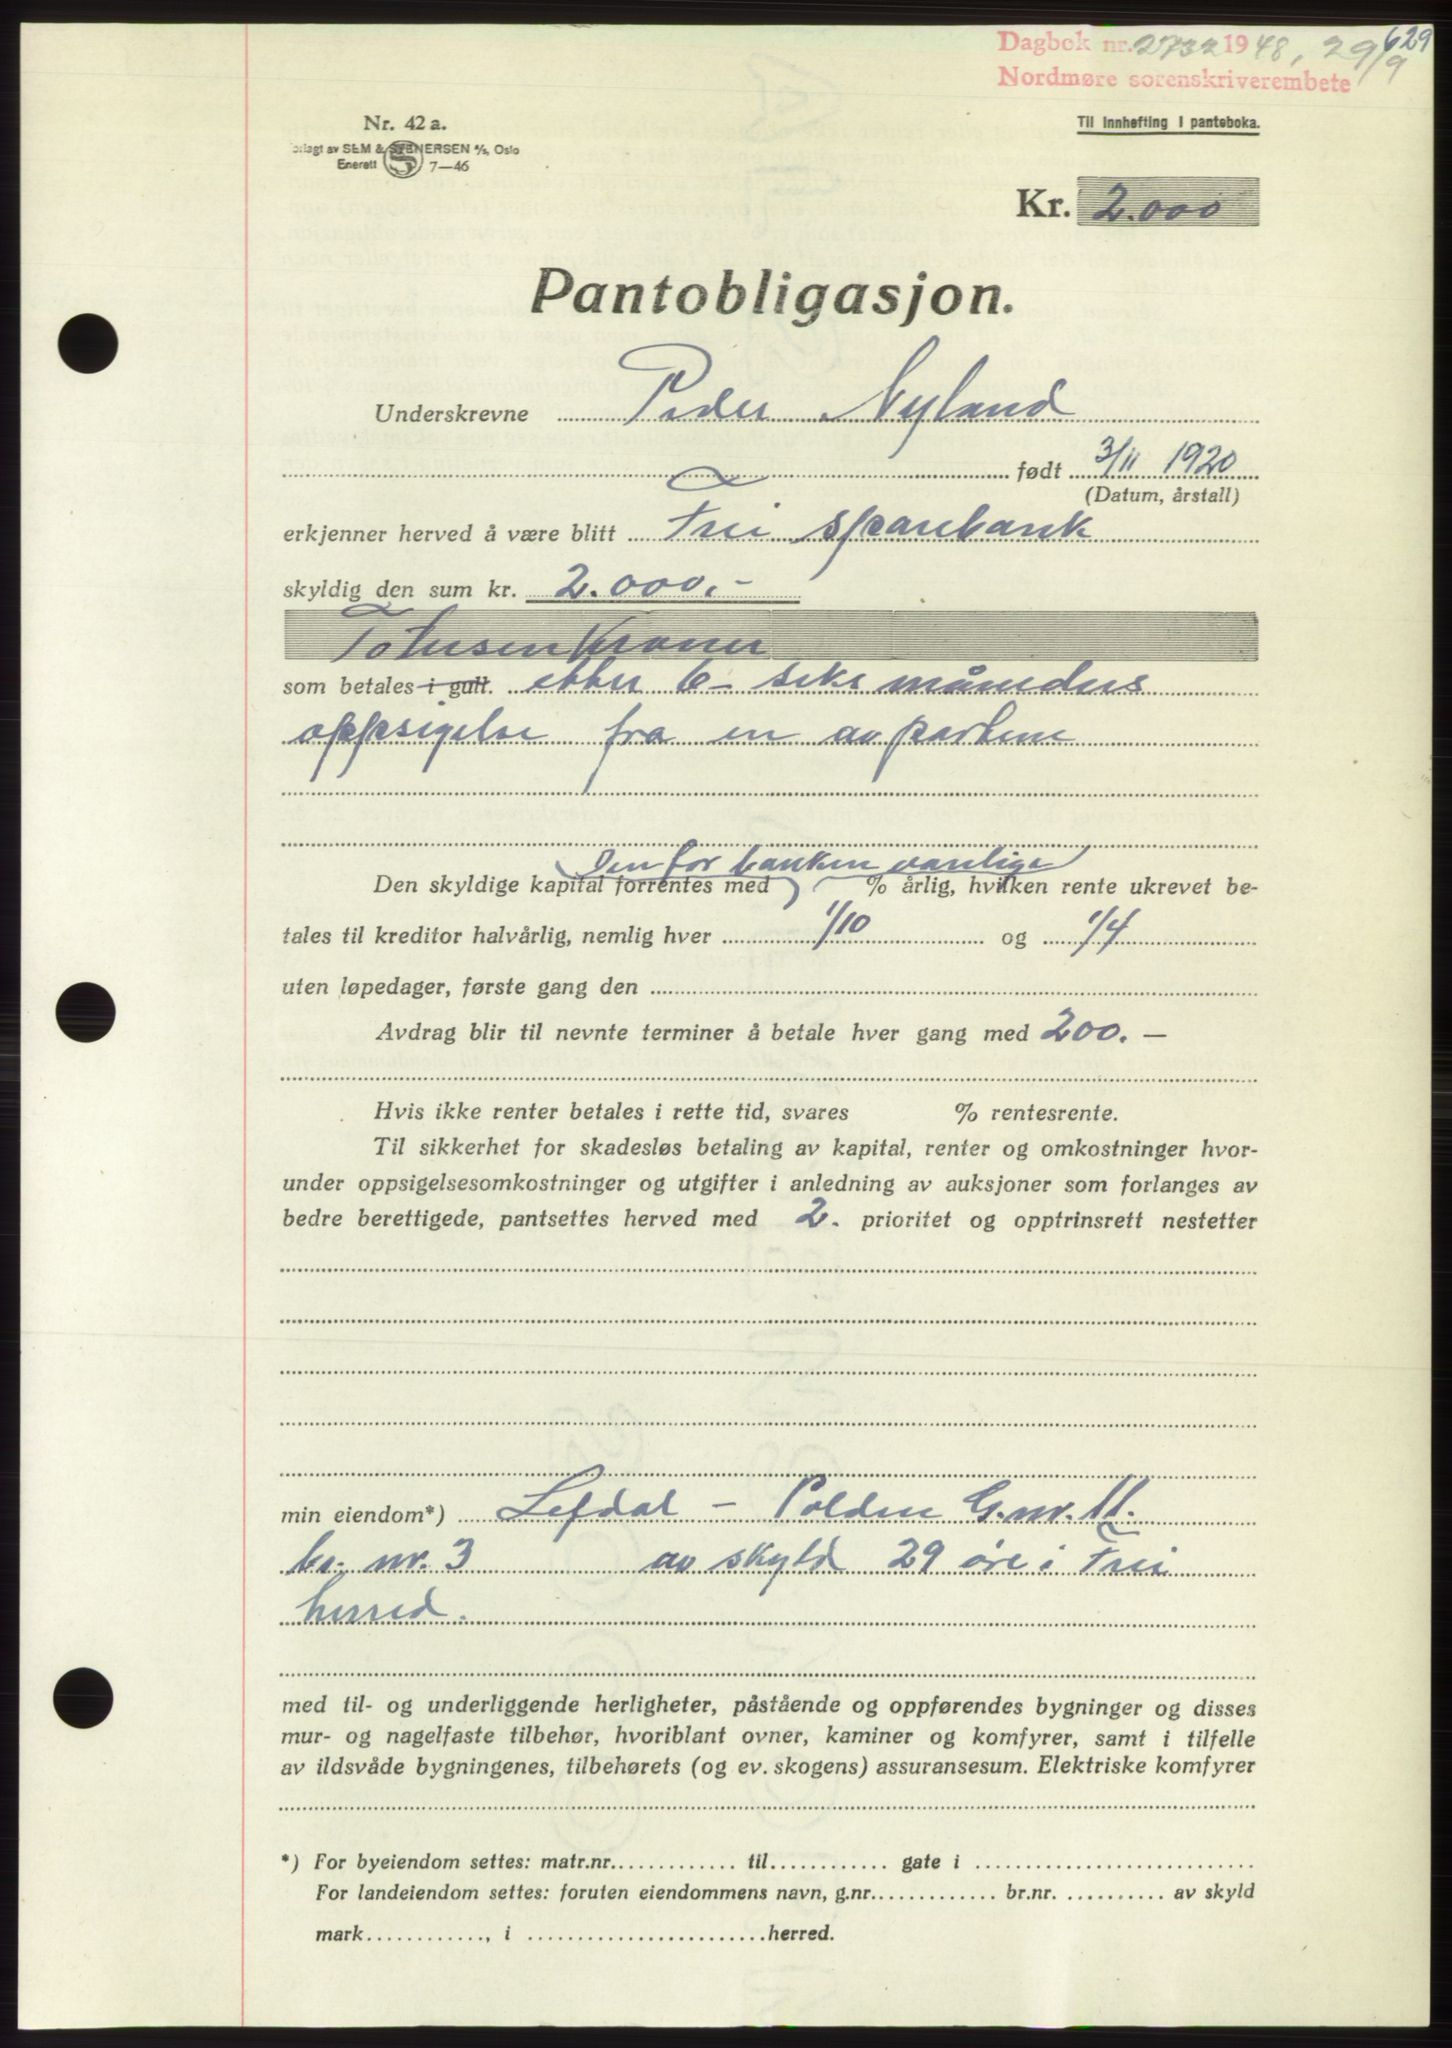 Dagbok nr. 2732 1948, 29/9 629
Nordmøre sorenskriverembete
Nr. 42 a.
Til innhefting i panteboka.
orlagt av SEM & STENERSEN A/S, Oslo
Enerett S 7—46
Kr. 2.000
Pantobligasjon.
Underskrevne Peder Nyland
født 3/11 1920
(Datum, årstall)
erkjenner herved å være blitt Frei sparebank
skyldig den sum kr. 2.000.-
Totusenkroner
som betales i gull. etter 6- seks måneders
oppsigelse fra en av partene
den for banken vanlige
Den skyldige kapital forrentes med % årlig, hvilken rente ukrevet be-
tales til kreditor halvårlig, nemlig hver 1/10 og 1/4
uten løpedager, første gang den
Avdrag blir til nevnte terminer å betale hver gang med 200.—
Hvis ikke renter betales i rette tid, svares % rentesrente.
Til sikkerhet for skadesløs betaling av kapital, renter og omkostninger hvor-
under oppsigelsesomkostninger og utgifter i anledning av auksjoner som forlanges av
bedre berettigede, pantsettes herved med 2. prioritet og opptrinsrett nestetter
min eiendom*) Lefdal - Polden G.nr. 11.
br. nr. 3 av skyld 29 øre i Frei
herred.
med til- og underliggende herligheter, påstående og oppførendes bygninger og disses
mur- og nagelfaste tilbehør, hvoriblant ovner, kaminer og komfyrer, samt i tilfelle
av ildsvåde bygningenes, tilbehørets (og ev. skogens) assuransesum. Elektriske komfyrer
*) For byeiendom settes: matr.nr. til gate i
For landeiendom settes: foruten eiendommens navn, g.nr. br.nr. av skyld
mark , i herred.